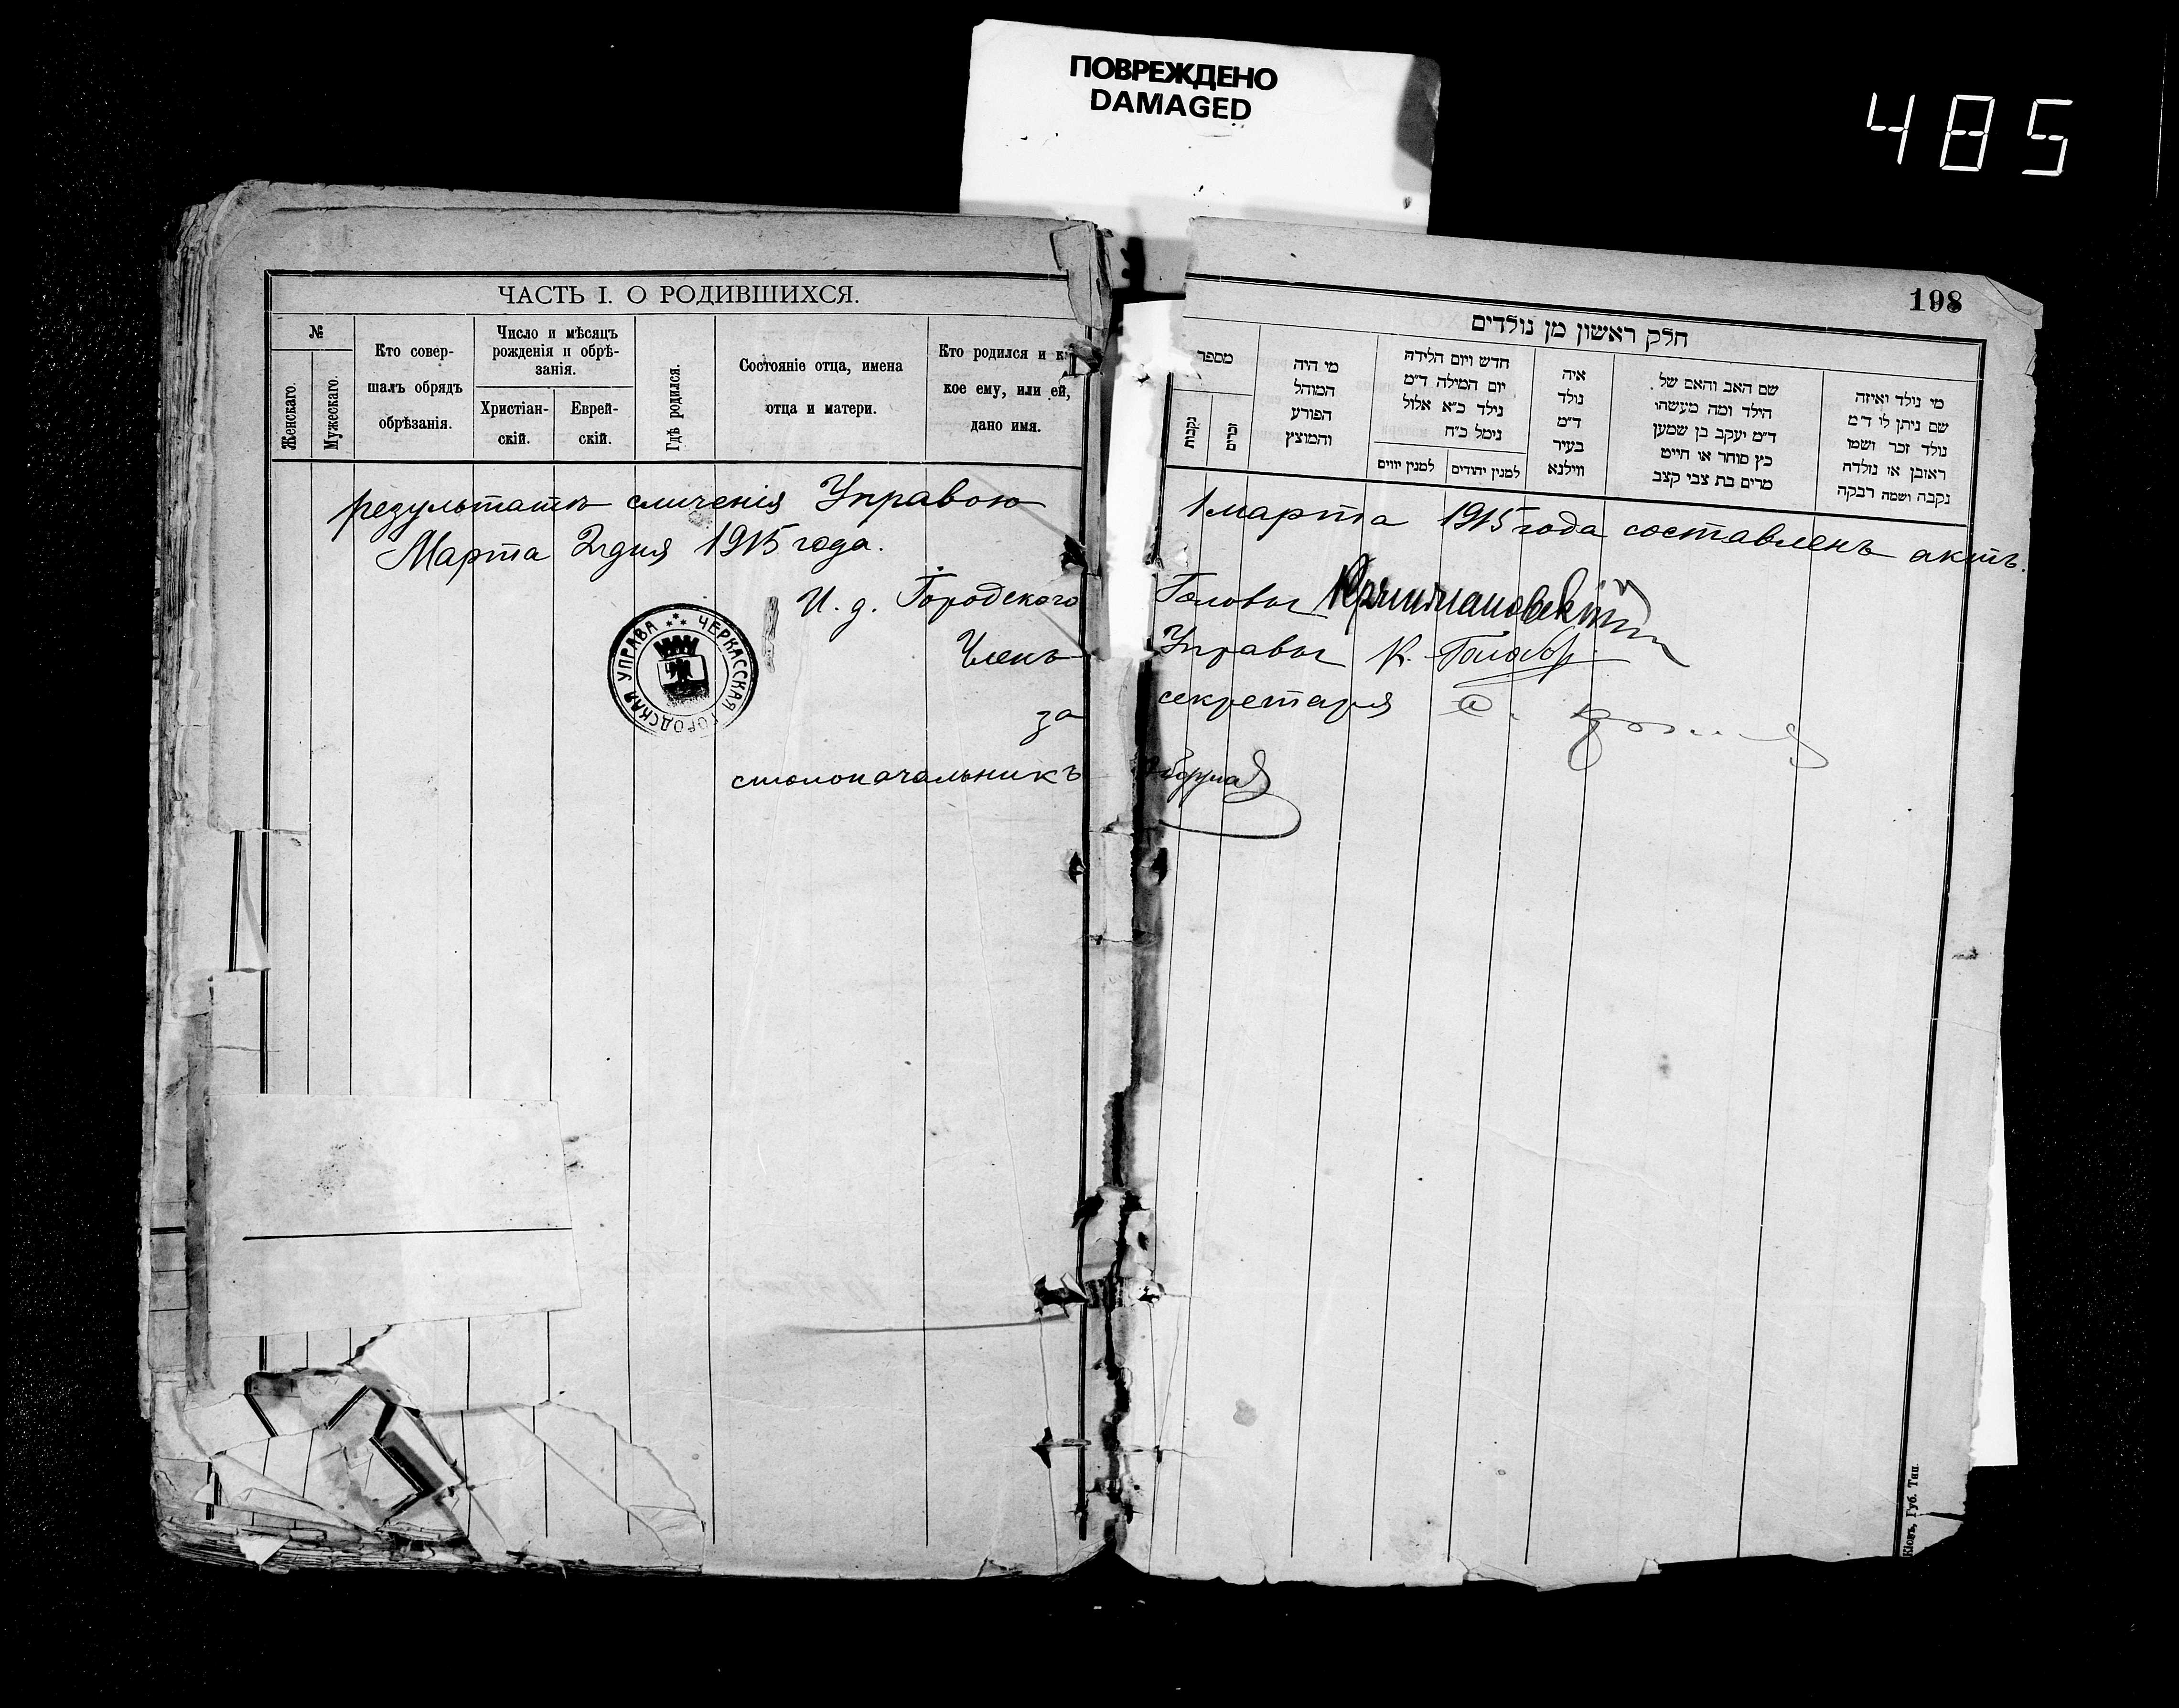 ПОВРЕЖДЕНО
DAMAGED
485
198
ЧАСТЬ I. О РОДИВШИХСЯ.
№
Женскаго.
Мужескаго.
Кто совер-
шалъ обрядъ
обрѣзанія.
Число и мѣсяцъ
рожденія и обрѣ-
занія.
Христіан-
скій.
Еврей-
скій.
Гдѣ родился.
Состояніе отца, имена
отца и матери.
Кто родился и ка
кое ему, или ей,
дано имя.
חלק ראשון מן נולדים
מספר
נקבות
זכרים
מי היה
המוהל
הפורע
והמוצץ
חדש ויום הלידה
יום המילה ד״מ
נילד כ״א אלול
נימל כ״ח
למנין יווים
למנין יהודים
איה
נולד
ד״מ
בעיר
ווילנא
שם האב והאם של
הילד ומה מעשהו
ד״מ יעקב בן שמען
כץ סוחר או חייט
מרים בת צבי קצב
מי נולד ואיזה
שם ניתן לו ד״מ
נולד זכר ושמו
ראובן או נולדה
נקבה ושמה רבקה
результатъ сличенія Управою 1 марта 1915 года составленъ актъ.
Марта 2 дня 1915 года.
И. д. Городского Головы
Членъ Управы К.
за секретаря
столоначальникъ
ЧЕРКАССКАЯ ГОРОДСКАЯ УПРАВА
Кіевъ, Губ. Тип.